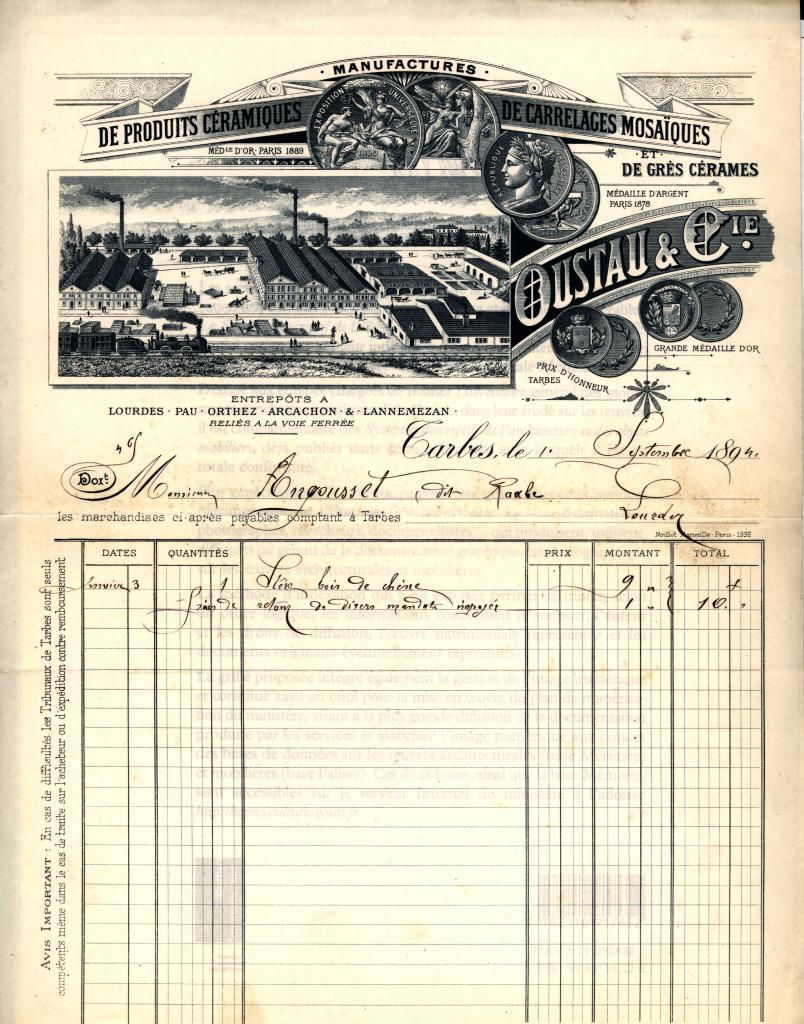 · MANUFACTURES ·
DE PRODUITS CÉRAMIQUES
DE CARRELAGES MOSAÏQUES
· ET ·
DE GRÈS CÉRAMES
MÉDLE D'OR · PARIS 1889
EXPOSITION UNIVERSELLE
1889
RÉPUBLIQUE FRANÇAISE
MÉDAILLE D'ARGENT
PARIS 1878
OUSTAU & CIE.
GRANDE MÉDAILLE D'OR
PRIX D'HONNEUR
TARBES
ENTREPÔTS A
LOURDES · PAU · ORTHEZ · ARCACHON · & · LANNEMEZAN ·
RELIÉS A LA VOIE FERRÉE
Tarbes, le 1er Septembre 1894.
Doit:
Monsieur Angousset, dit Raabe
Lourdes
les marchandises ci-après payables comptant à Tarbes
Mouillot Marseille-Paris-1932
DATES QUANTITÉS PRIX MONTANT TOTAL
Janvier 3 1 Stère bois de chêne 9 "
frais de retour de divers mandats impayés 1 " 10 "
AVIS IMPORTANT : En cas de difficultés les Tribunaux de Tarbes sont seuls
compétents même dans le cas de traite sur l'acheteur ou d'expédition contre remboursement